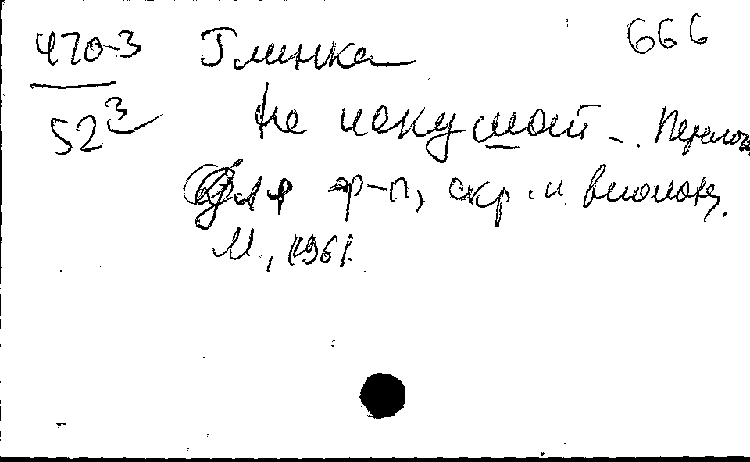 470-3 Глинка 666
52³ Не искушай... Перелож.
Для ф-п, скр. и виолонч.
М., 1961.